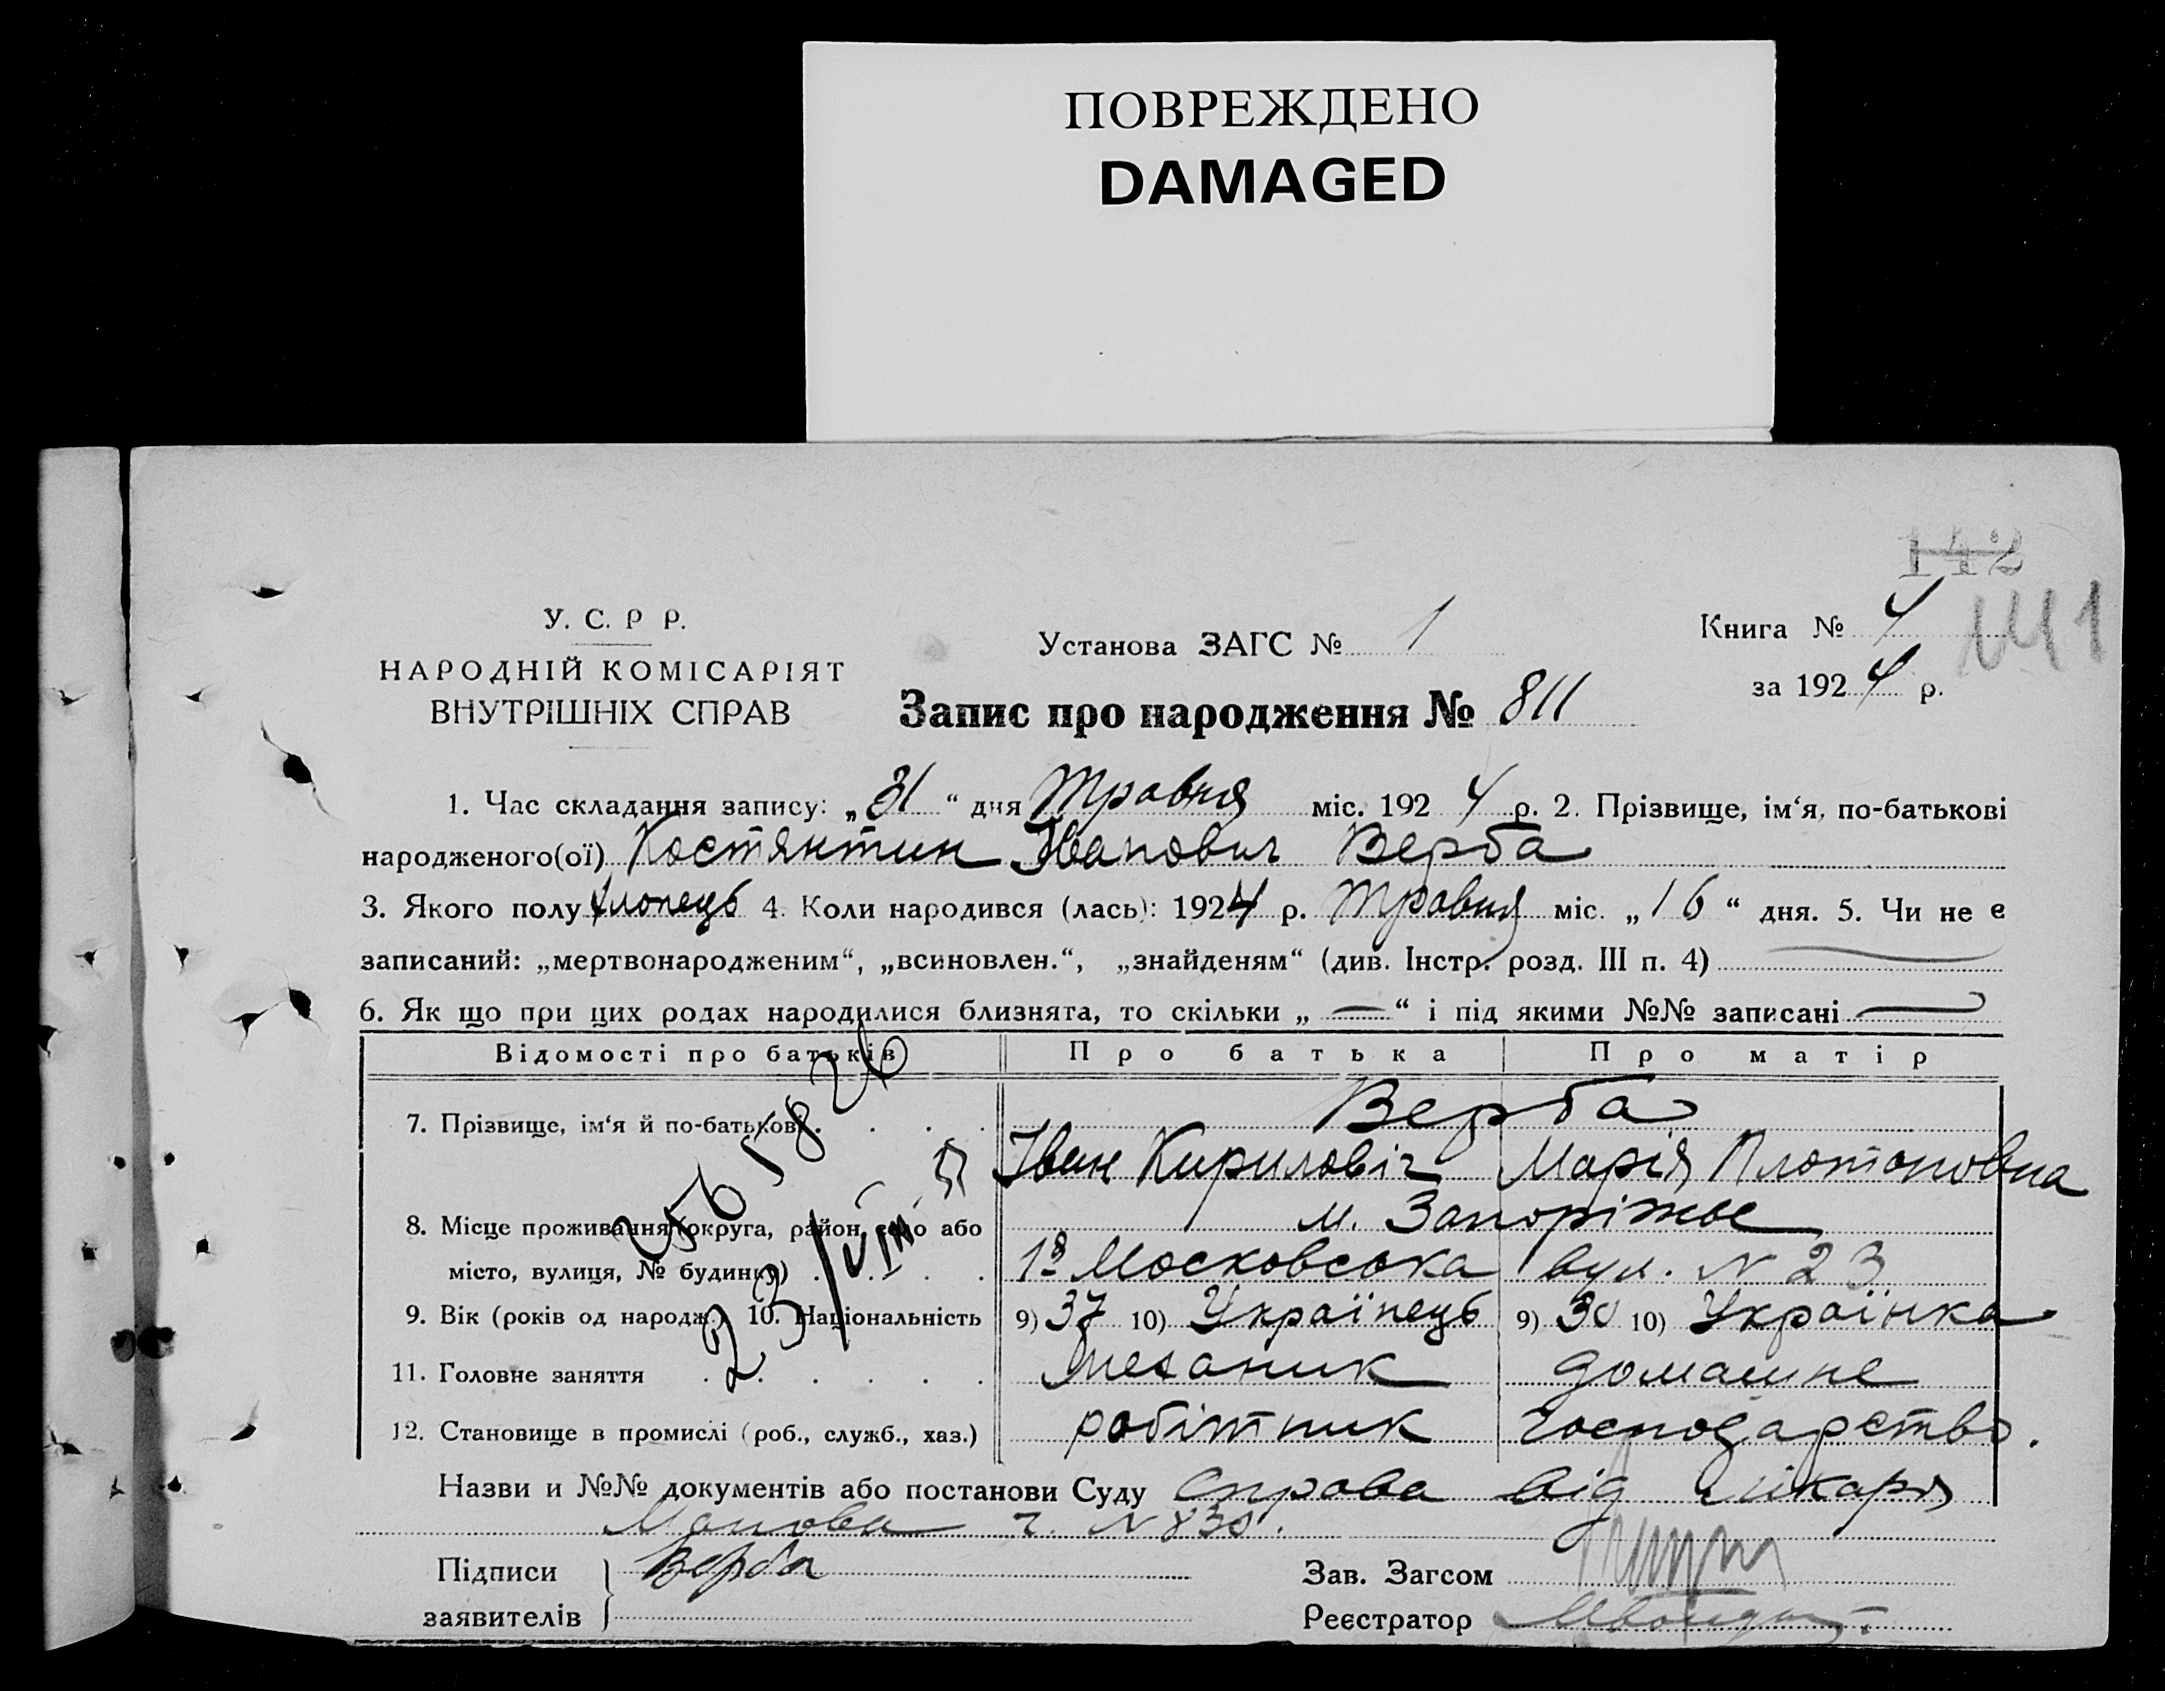 ПОВРЕЖДЕНО
DAMAGED
142
141
У. С. Р Р.
НАРОДНІЙ КОМІСАРІЯТ
ВНУТРІШНІХ СПРАВ
Установа ЗАГС № 1
Книга № 4
за 1924 р.
Запис про народження № 811
1. Час складання запису: „31“ дня Травня міс. 1924 р. 2. Прізвище, ім‘я, по-батькові
народженого(ої) Костянтин Іванович Верба
3. Якого полу хлопець 4. Коли народився (лась): 1924 р. Травня міс. „16“ дня. 5. Чи не є
записаний: „мертвонародженим“, „всиновлен.“, „знайденям“ (див. Інстр. розд. III п. 4)
6. Як що при цих родах народилися близнята, то скільки „—“ і під якими №№ записані —
Відомості про батьків Про батька Про матір
7. Прізвище, ім‘я й по-батькові Верба
Іван Кирилович Марія Платоновна
8. Місце проживання (округа, район, село або м. Запоріжье
місто, вулиця, № будинку) 18 Московська вул. N 23
9. Вік (років од народж.) 10. Національність 9) 37 10) Українець 9) 30 10) Українка
11. Головне заняття механик домашне
12. Становище в промислі (роб., служб., хаз.) робітник господарство.
23/VIII
Назви и №№ документів або постанови Суду Справа від лікаря
ч. N 830.
Підписи Верба
заявителів
Зав. Загсом
Реєстратор